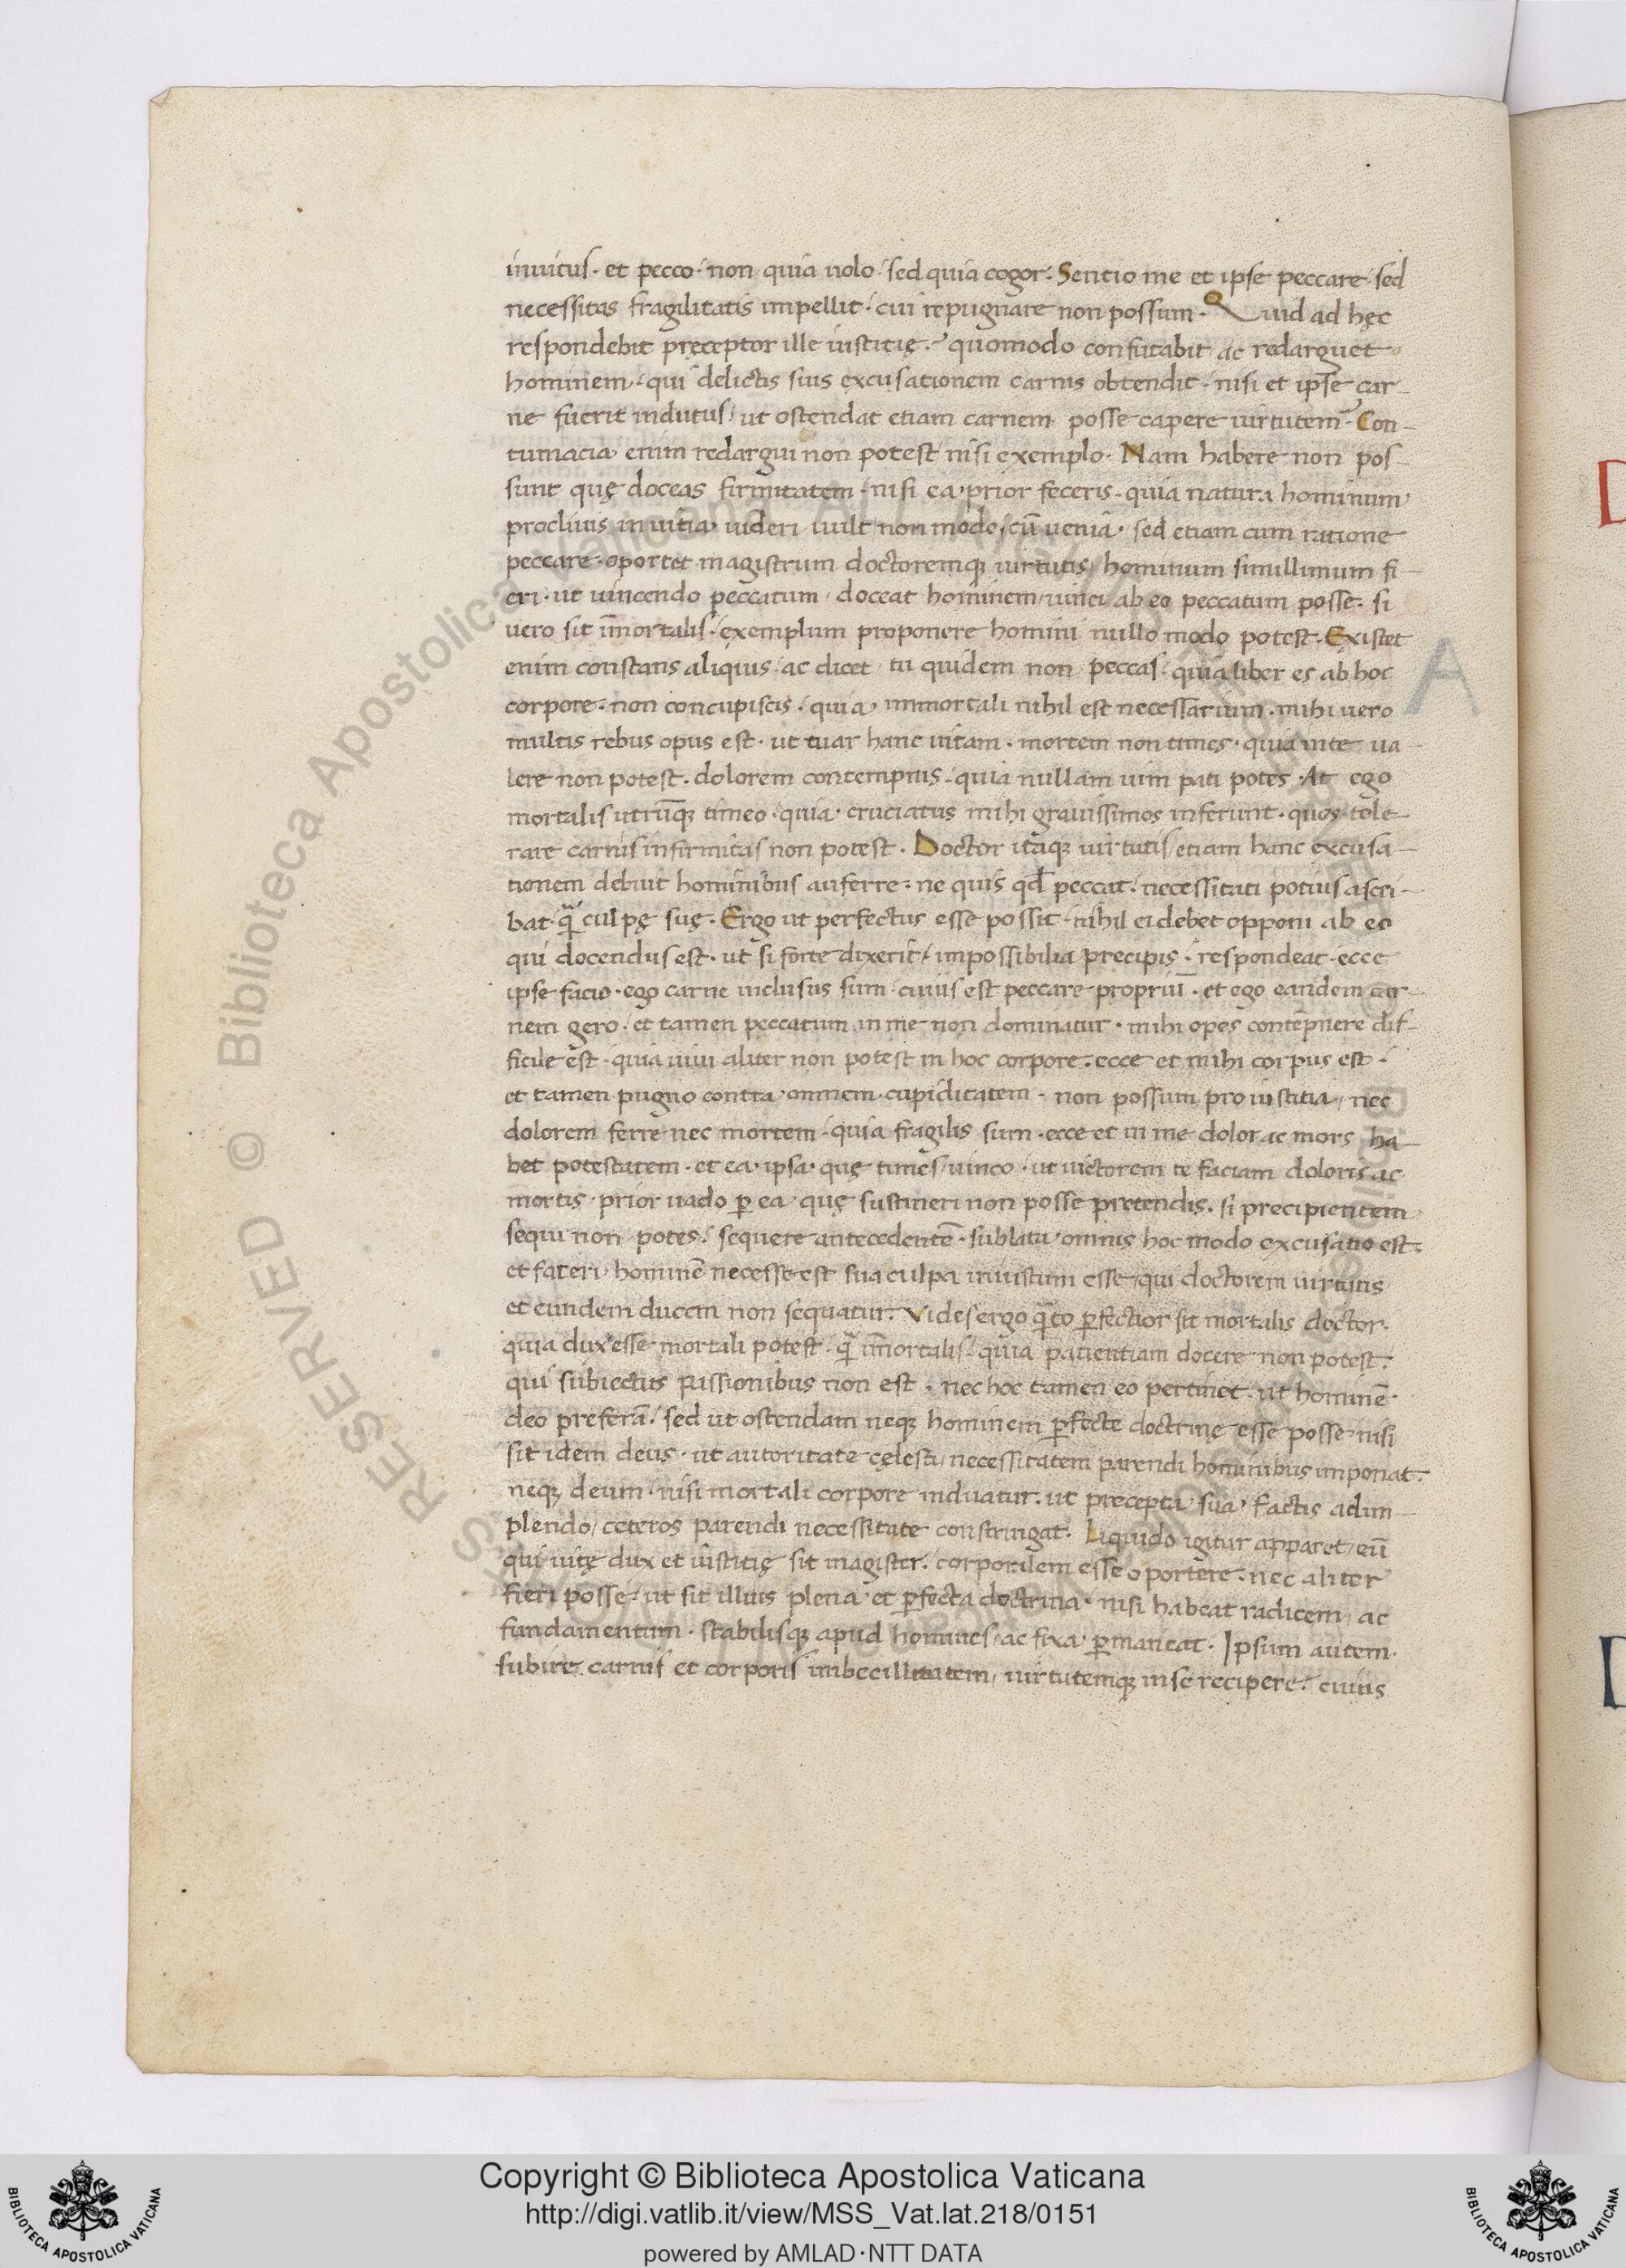 inuitus · et pecco · non quia uolo · sed quia cogor · Sentio me et ipse peccare · sed
necessitas fragilitatis impellit · cui repugnare non possum · Quid ad hęc
respondebit pręceptor ille iusticię · quomodo confutabit ac redarguet
hominem · qui delictis suis excusationem carnis obtendit · nisi et ipse car-
ne fuerit indutus / ut ostendat etiam carnem posse capere uirtutem · Con-
tumacia enim redargui non potest / nisi exemplo · Nam habere non pos-
sunt quę doceas firmitatem · nisi ea prior feceris · quia natura hominum
procliuis in uitia uideri uult non modo cū uenia · sed etiam cum ratione
peccare · oportet magistrum doctoremq; uirtutis / hominum simillimum fi-
eri · ut uincendo peccatum / doceat hominem / uinci ab eo peccatum posse · si
uero sit īmortalis · exemplum proponere homini nullo modo potest · Existet
enim constans aliquis · ac dicet / tu quidem non peccas · quia liber es ab hoc
corpore · non concupiscis · quia immortali nihil est necessarium · mihi uero
multis rebus opus est · ut tuar hanc uitam · mortem non times · quia in te ua-
lere non potest · dolorem contempnis · quia nullam uim pati potes · At ego
mortalis utrūq; timeo · quia cruciatus mihi grauissimos inferunt · quos tole-
rare carnis infirmitas non potest · Doctor itaq; uirtutis / etiam hanc excusa-
tionem debuit hominibus auferre · ne quis qđ peccat · necessitati potius ascri-
bat · q̄ culpę suę · Ergo ut perfectus esse possit · nihil ei debet opponi ab eo
qui docendus est · ut si forte dixerit / impossibilia precipis · respondeat · ecce
ipse facio · ego carne inclusus sum · cuius est peccare propriū · et ego eandem car-
nem gero · et tamen peccatum in me non dominatur · mihi opes contēpnere dif-
ficile est · quia uiui aliter non potest in hoc corpore · ecce et mihi corpus est ·
et tamen pugno contra omnem cupiditatem · non possum pro iustitia / nec
dolorem ferre nec mortem · quia fragilis sum · ecce et in me dolor ac mors ha-
bet potestatem · et ea ipsa quę times / uinco · ut uictorem te faciam doloris ac
mortis · prior uado p̱ ea quę sustineri non posse pretendis · si precipientem
sequi non potes · sequere antecedentē · sublata omnis hoc modo excusatio est ·
et fateri hominē necesse est sua culpa iniustum esse / qui doctorem uirtutis
et eundem ducem non sequatur · Vides ergo q̄to p̱fectior sit mortalis doctor ·
quia dux esse mortali potest · q̄ īmortalis · quia patientiam docere non potest ·
qui subiectus passionibus non est · nec hoc tamen eo pertinet · ut hominē
deo preferā · sed ut ostendam neq; hominem p̱fecte doctrinę esse posse nisi
sit idem deus · ut autoritate cęlesti / necessitatem parendi hominibus imponat ·
neq; deum · nisi mortali corpore induatur · ut precepta sua factis adim-
plendo / ceteros parendi necessitate constringat · Liquido igitur apparet / eū
qui uitę dux et iusticię sit magister · corporalem esse oportere · nec aliter
fieri posse / ut sit illius plena et p̱fecta doctrina · nisi habeat radicem ac
fundamentum · stabilisq; apud homines / ac fixa p̱maneat · Ipsum autem ·
subire carnis et corporis imbecillitatem / uirtutemq; in se recipere · cuius
A
RESERVED © Biblioteca Apostolica Vaticana
Copyright © Biblioteca Apostolica Vaticana
http://digi.vatlib.it/view/MSS_Vat.lat.218/0151
powered by AMLAD·NTT DATA
BIBLIOTECA APOSTOLICA VATICANA
BIBLIOTECA APOSTOLICA VATICANA